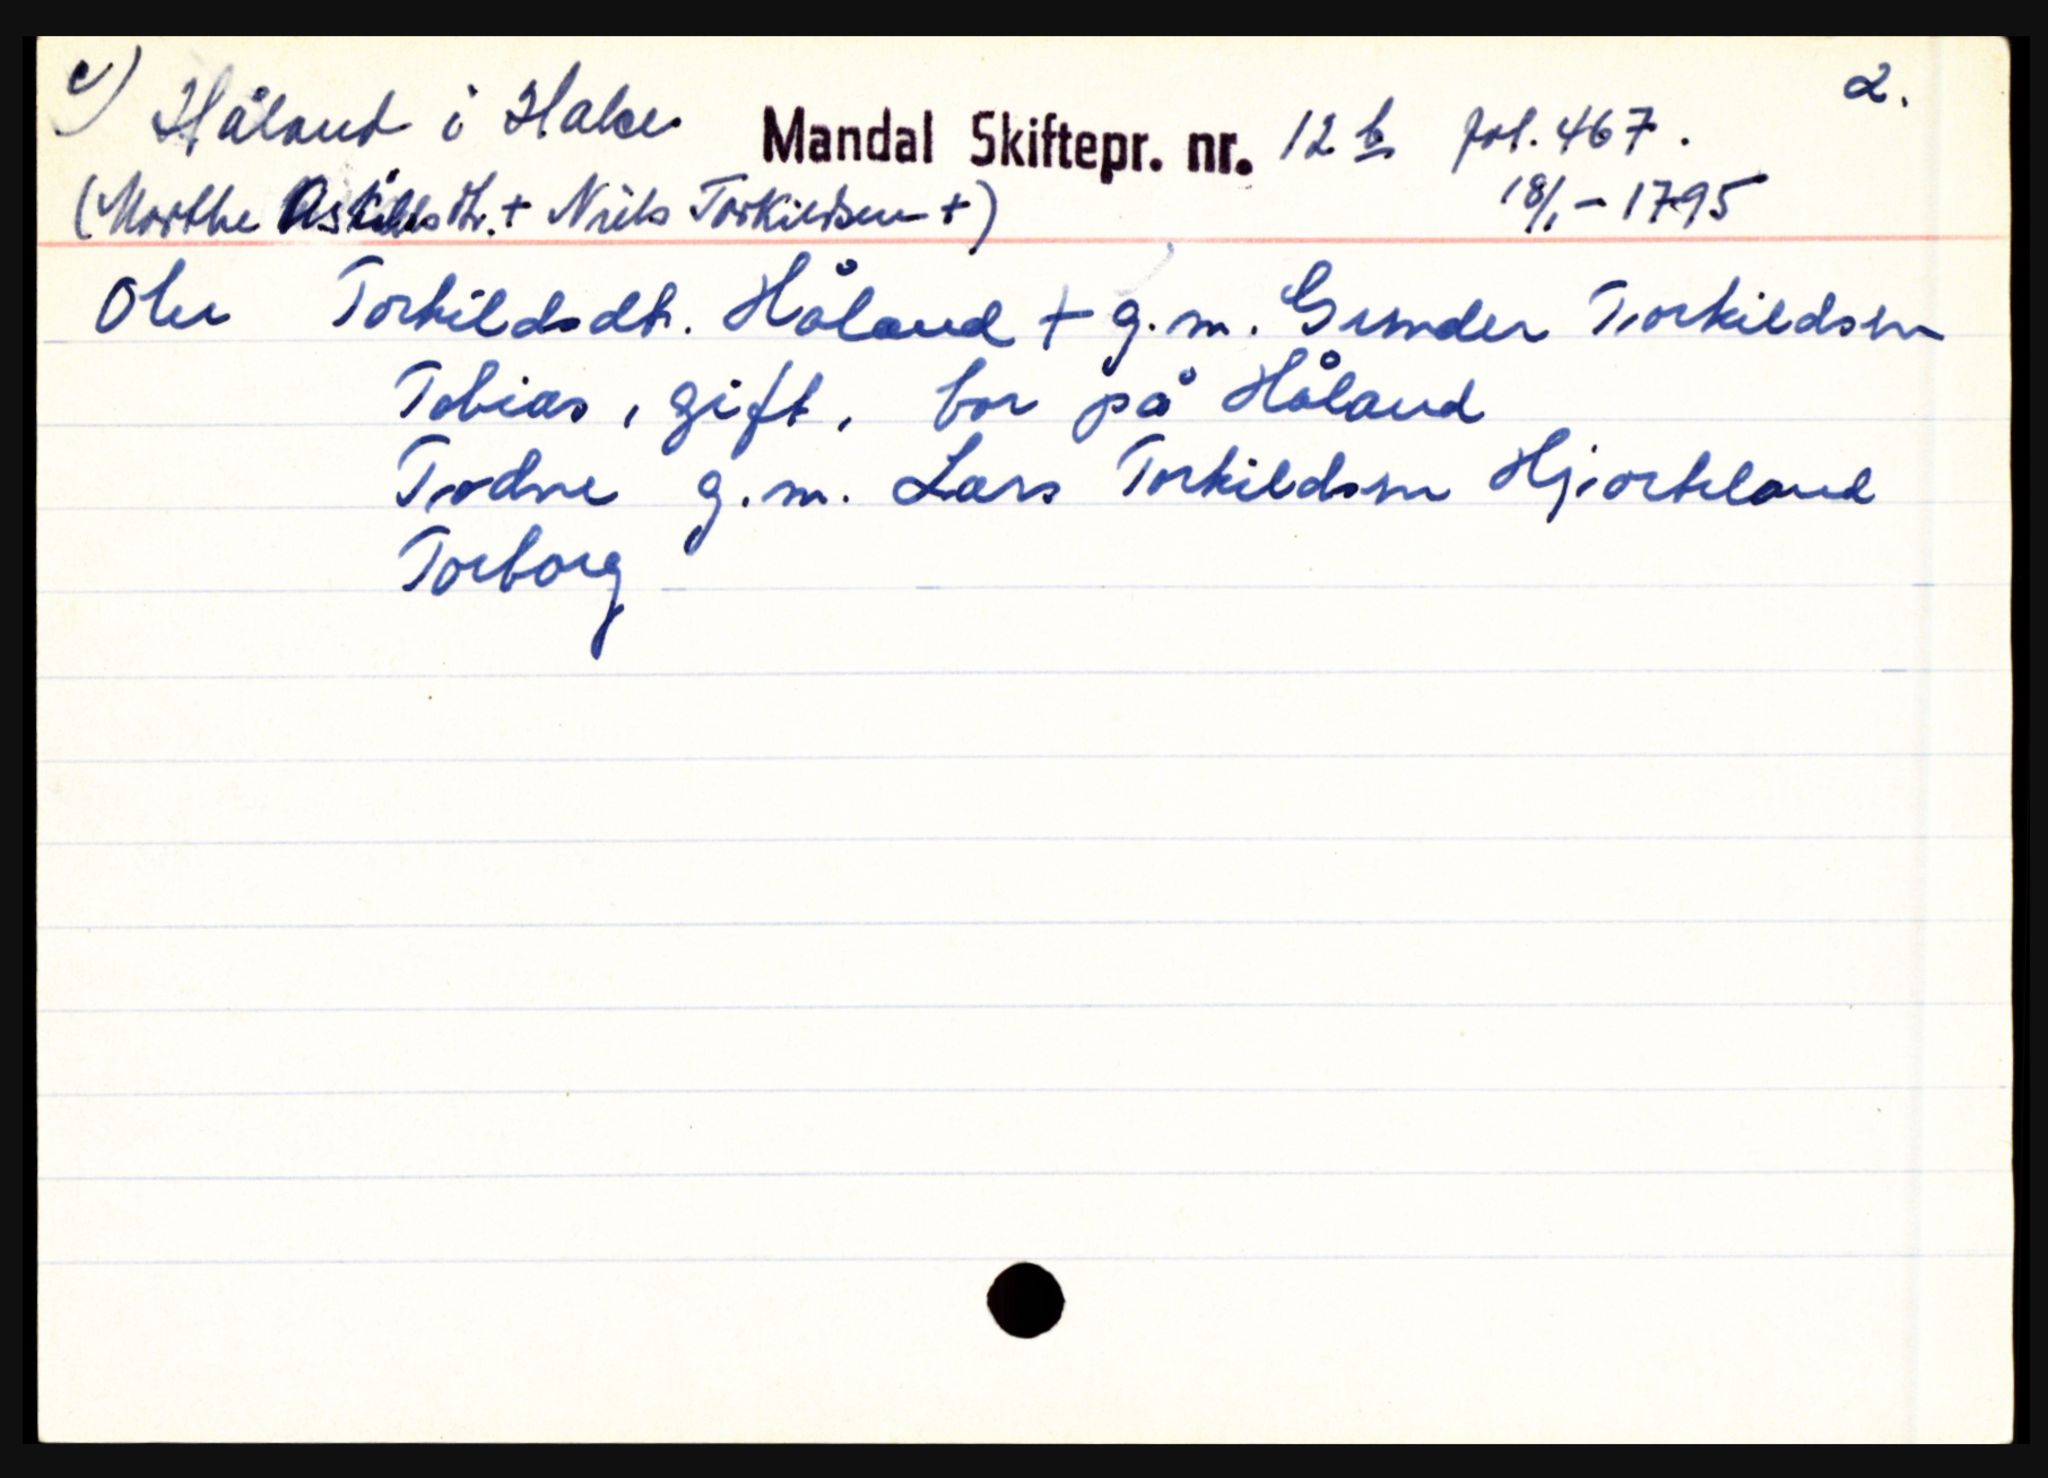 c) Håland i Halse Mandal Skiftepr. nr. 12 b fol. 467. 2.
(Marthe Askildsdtr. + Niels Torkildsen +) 18/1 - 1795
Torkildsdtr. Håland + g. m. Gunder Torkildsen
Tobias, gift, bor på Håland
Todne g. m. Lars Torkildsen Hjorteland
Torborg